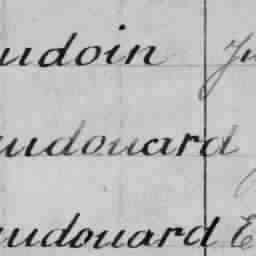 udoin
udouard
udouard E